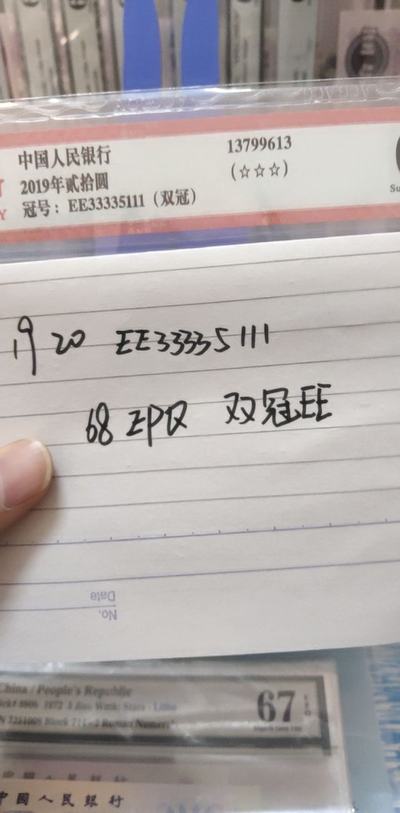 中国人民银行
13799613
2019年贰拾圆
(☆☆☆)
冠号：EE33335111（双冠）
19 20 EE33335111
68 EPQ 双冠EE
No.
Date
China / People's Republic
67
中国人民银行